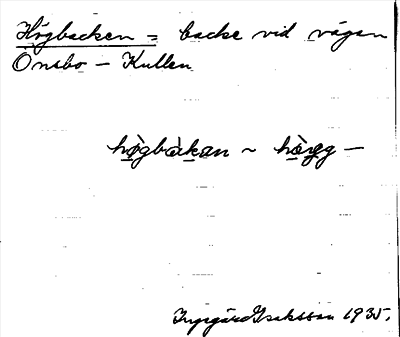 Högbacken = backe vid vägen
Önsbo – Kullen
hø̀gbàkan ~ hø̀gg –
Ingegärd Isaksson 1935.